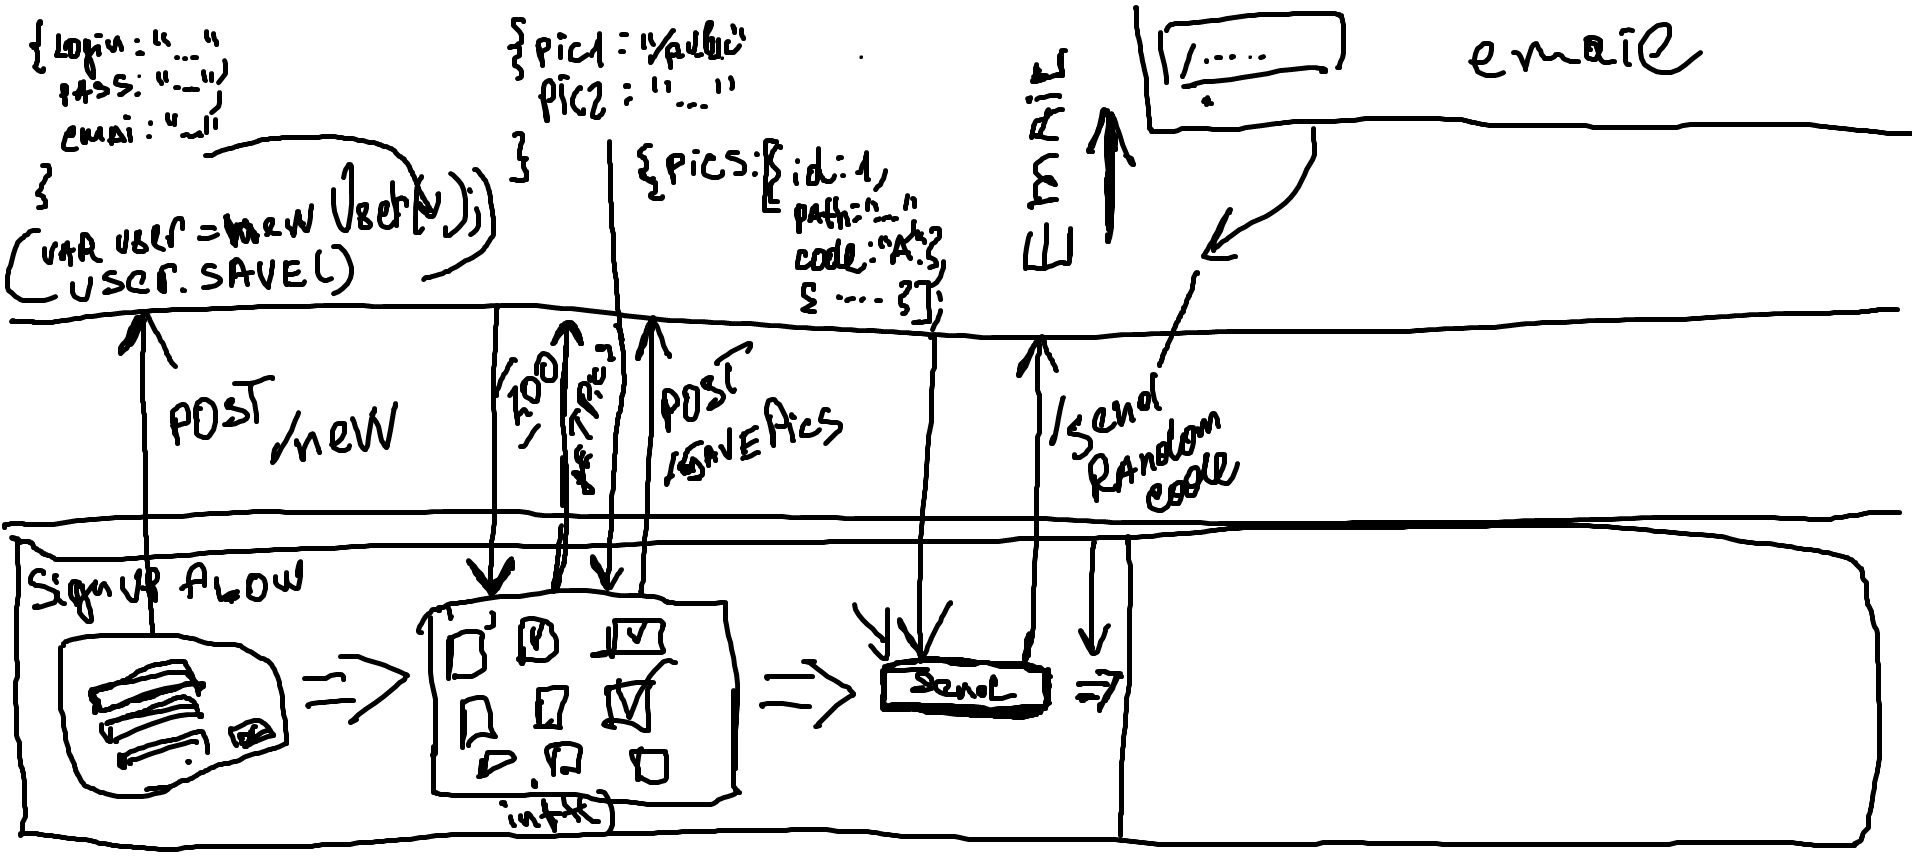 {Login: "...",
PASS: "...",
emai: "..."
}
(VAR user = new User( );
user.SAVE()
{pic1: "/public"
pic2: "..."
}
{pics:[{id:1,
path:"..."
code:"A"},
{ .... {];
EMAIL
/.....
email
POST
/new
/200
POST
/SAVE Pics
/Send
RAndom
code
Sign UP fLOW
Send